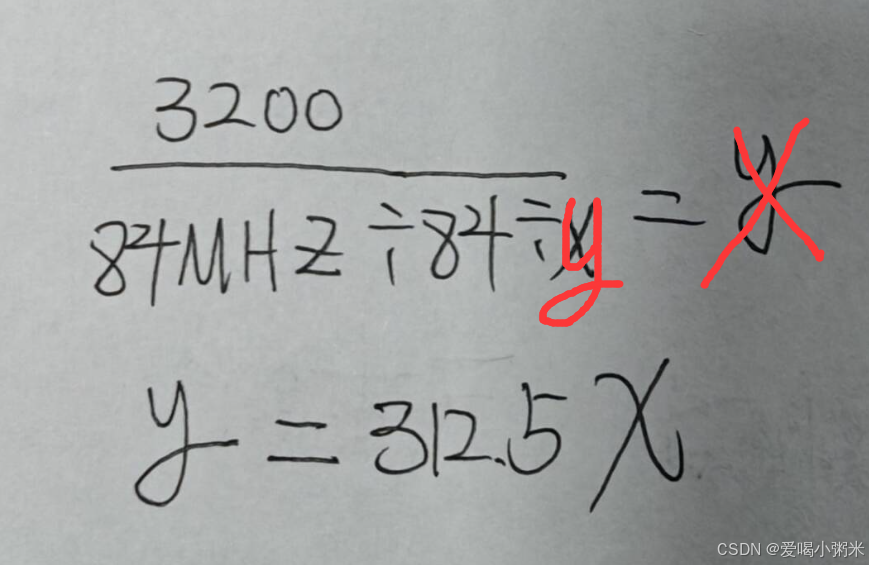 3200
84MHZ÷84÷y = y
y = 312.5 X
CSDN @爱喝小粥米